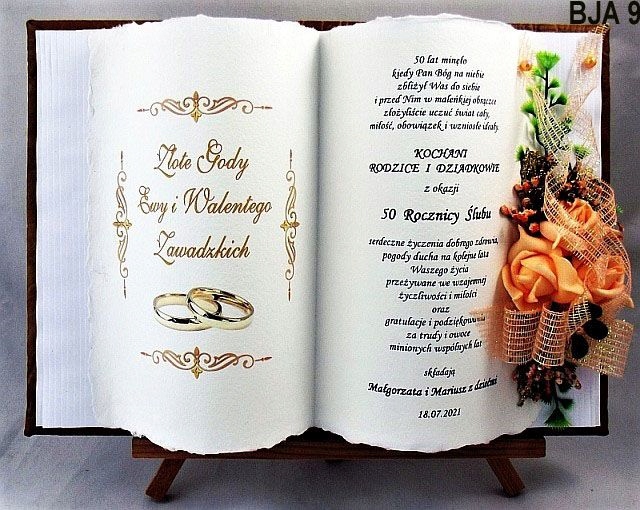 BJA 9
Złote Gody
Ewy i Walentego
Zawadzkich
50 lat minęło
kiedy Pan Bóg na niebie
zbliżył Was do siebie
i przed Nim w maleńkiej obrączce
złożyliście uczuć świat cały,
miłość, obowiązek i wzniosłe ideały.
KOCHANI
RODZICE I DZIADKOWIE
z okazji
50 Rocznicy Ślubu
serdeczne życzenia dobrego zdrowia,
pogody ducha na kolejne lata
Waszego życia
przeżywane we wzajemnej
życzliwości i miłości
oraz
gratulacje i podziękowania
za trudy i owoce
minionych wspólnych lat
składają
Małgorzata i Mariusz z dziećmi
18.07.2021